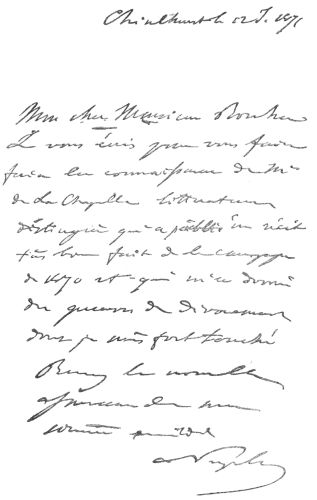 Chislehurst le 12 J. 1871
Mon cher Monsieur Rouher
Je vous écris pour vous faire
faire la connaissance de Mr
de La Chapelle littérateur
distingué qui a publié un récit
très bien fait de la campagne
de 1870 et qui m'a donné
des preuves de dévouement
dont je suis fort touché
la nouvelle
assurance de mon
amitié
Napoléon